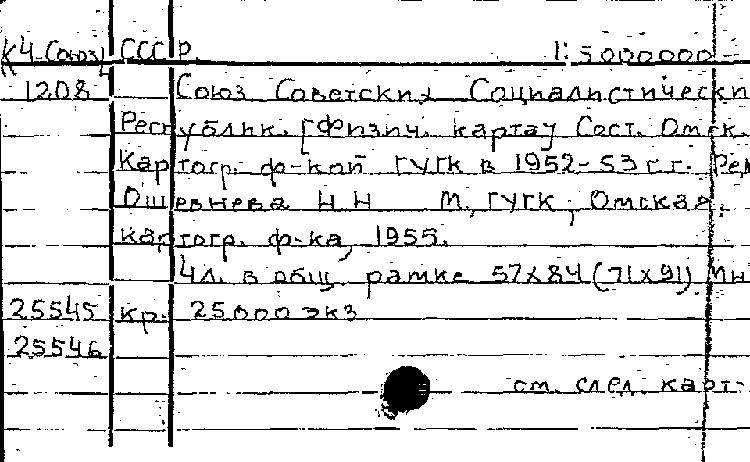 К4-Союз СССР. 1:5000000-
1208 Союз Советских Социалистически
Республик. [Физич. карта] Сост. Омск.
Картогр. ф-кой ГУГК в 1952-53 г.г. Ред
Ошевнева Н Н М., ГУГК, Омская.
картогр. ф-ка, 1955.
4л. в общ. рамке 57х84 (71х91) Мн
25545 кр. 25000 экз
25546
см. след. карт-